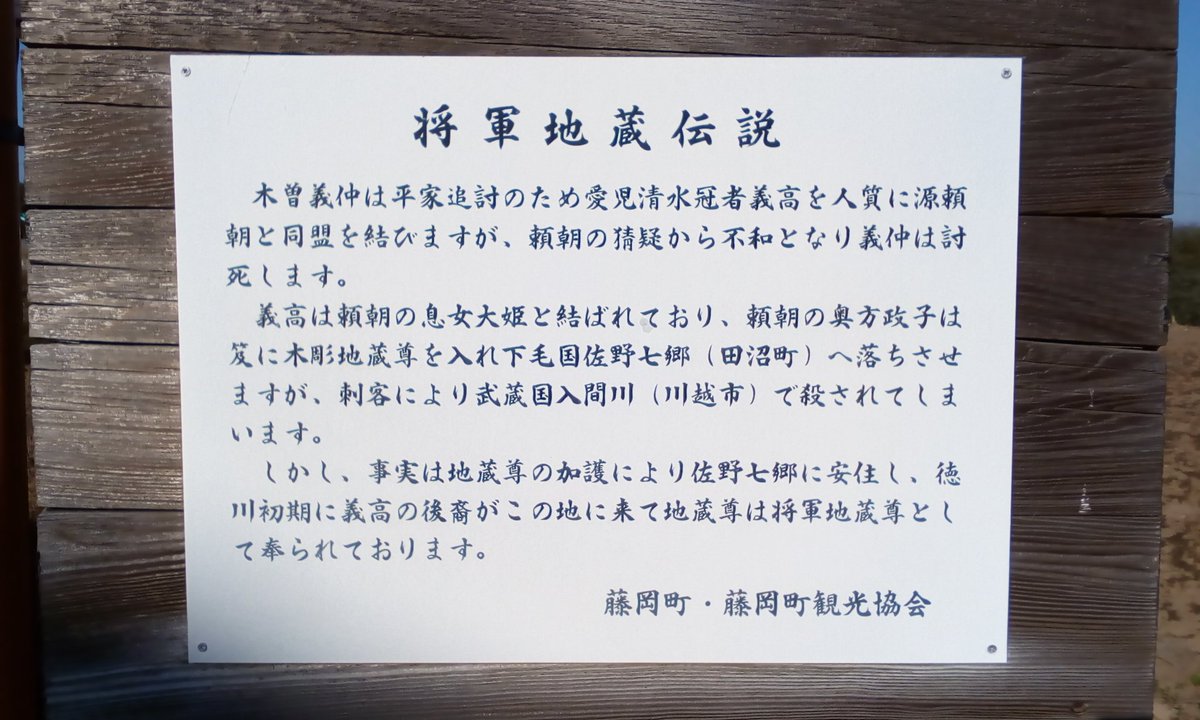 将軍地蔵伝説
木曽義仲は平家追討のため愛児清水冠者義高を人質に源頼
朝と同盟を結びますが、頼朝の猜疑から不和となり義仲は討
死します。
義高は頼朝の息女大姫と結ばれており、頼朝の奥方政子は
笈に木彫地蔵尊を入れ下毛国佐野七郷（田沼町）へ落ちさせ
ますが、刺客により武蔵国入間川（川越市）で殺されてしま
います。
しかし、事実は地蔵尊の加護により佐野七郷に安住し、徳
川初期に義高の後裔がこの地に来て地蔵尊は将軍地蔵尊とし
て奉られております。
藤岡町・藤岡町観光協会